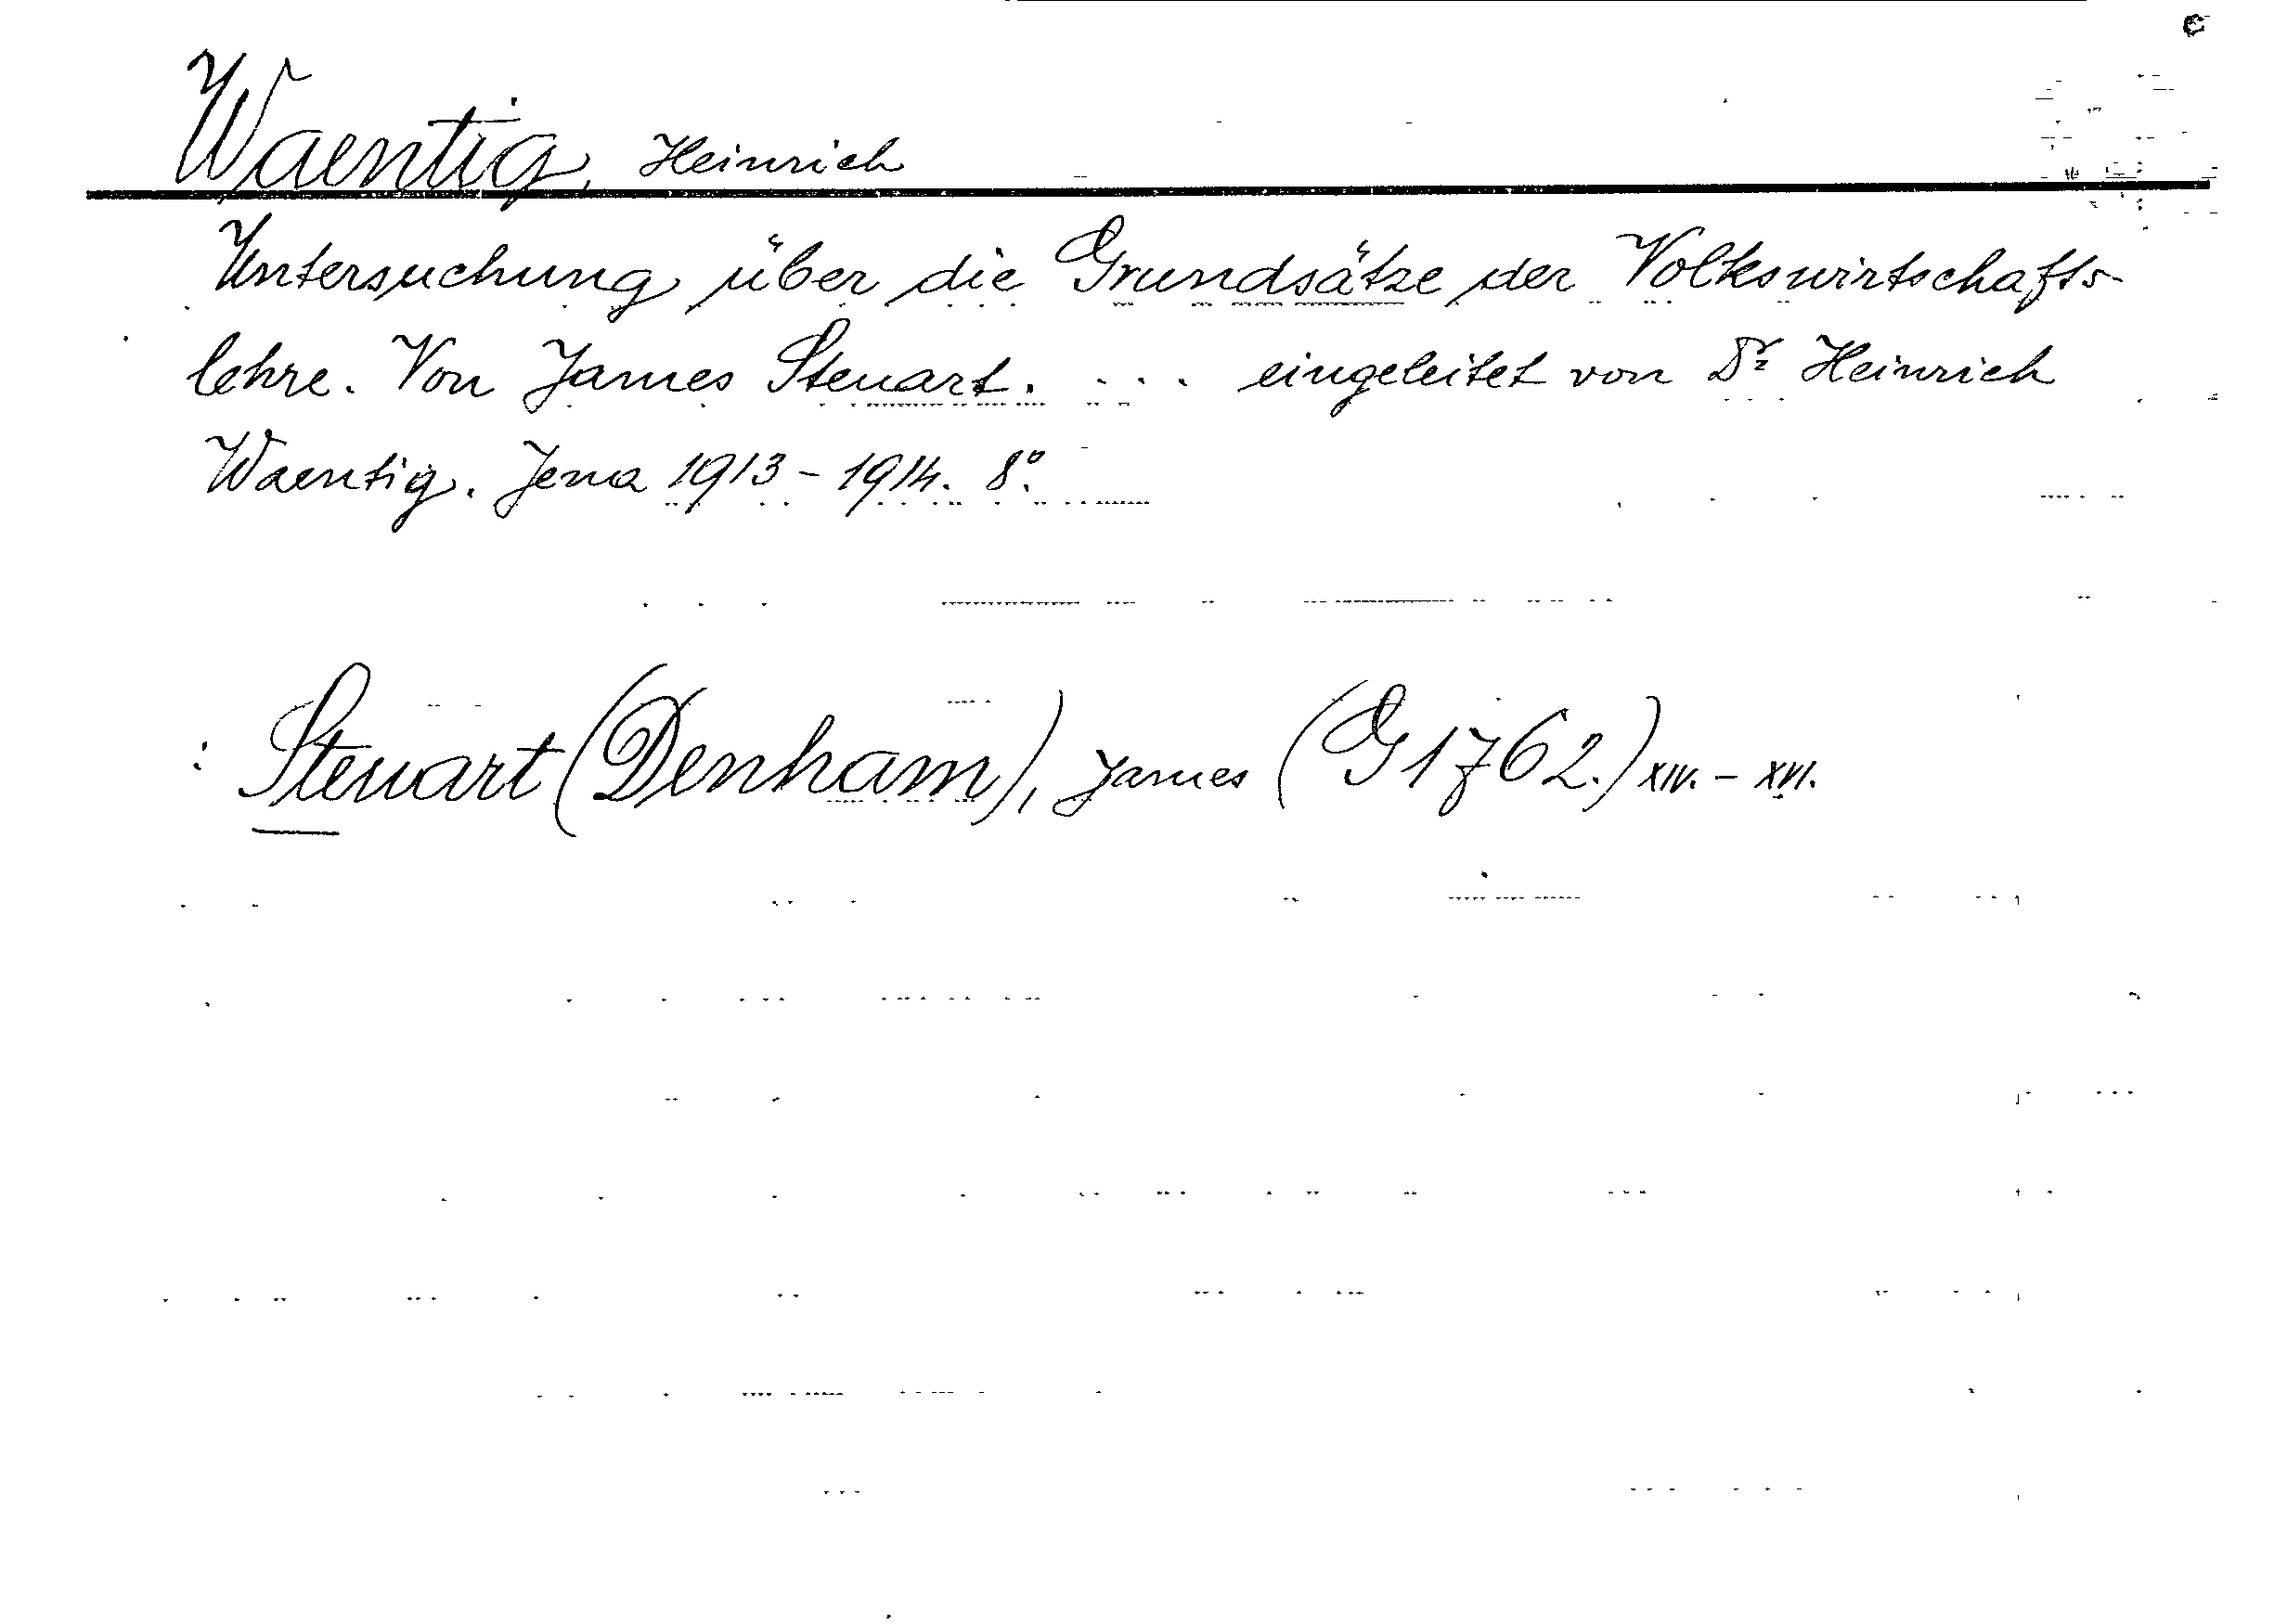 Waentig, Heinrich
Untersuchung über die Grundsätze der Volkswirtschafts-
lehre. Von James Steuart. ... eingeleitet von Dr Heinrich
Waentig. Jena 1913-1914. 8º.
: Steuart (Denham), James (G 1762.) XIV. - XVI.